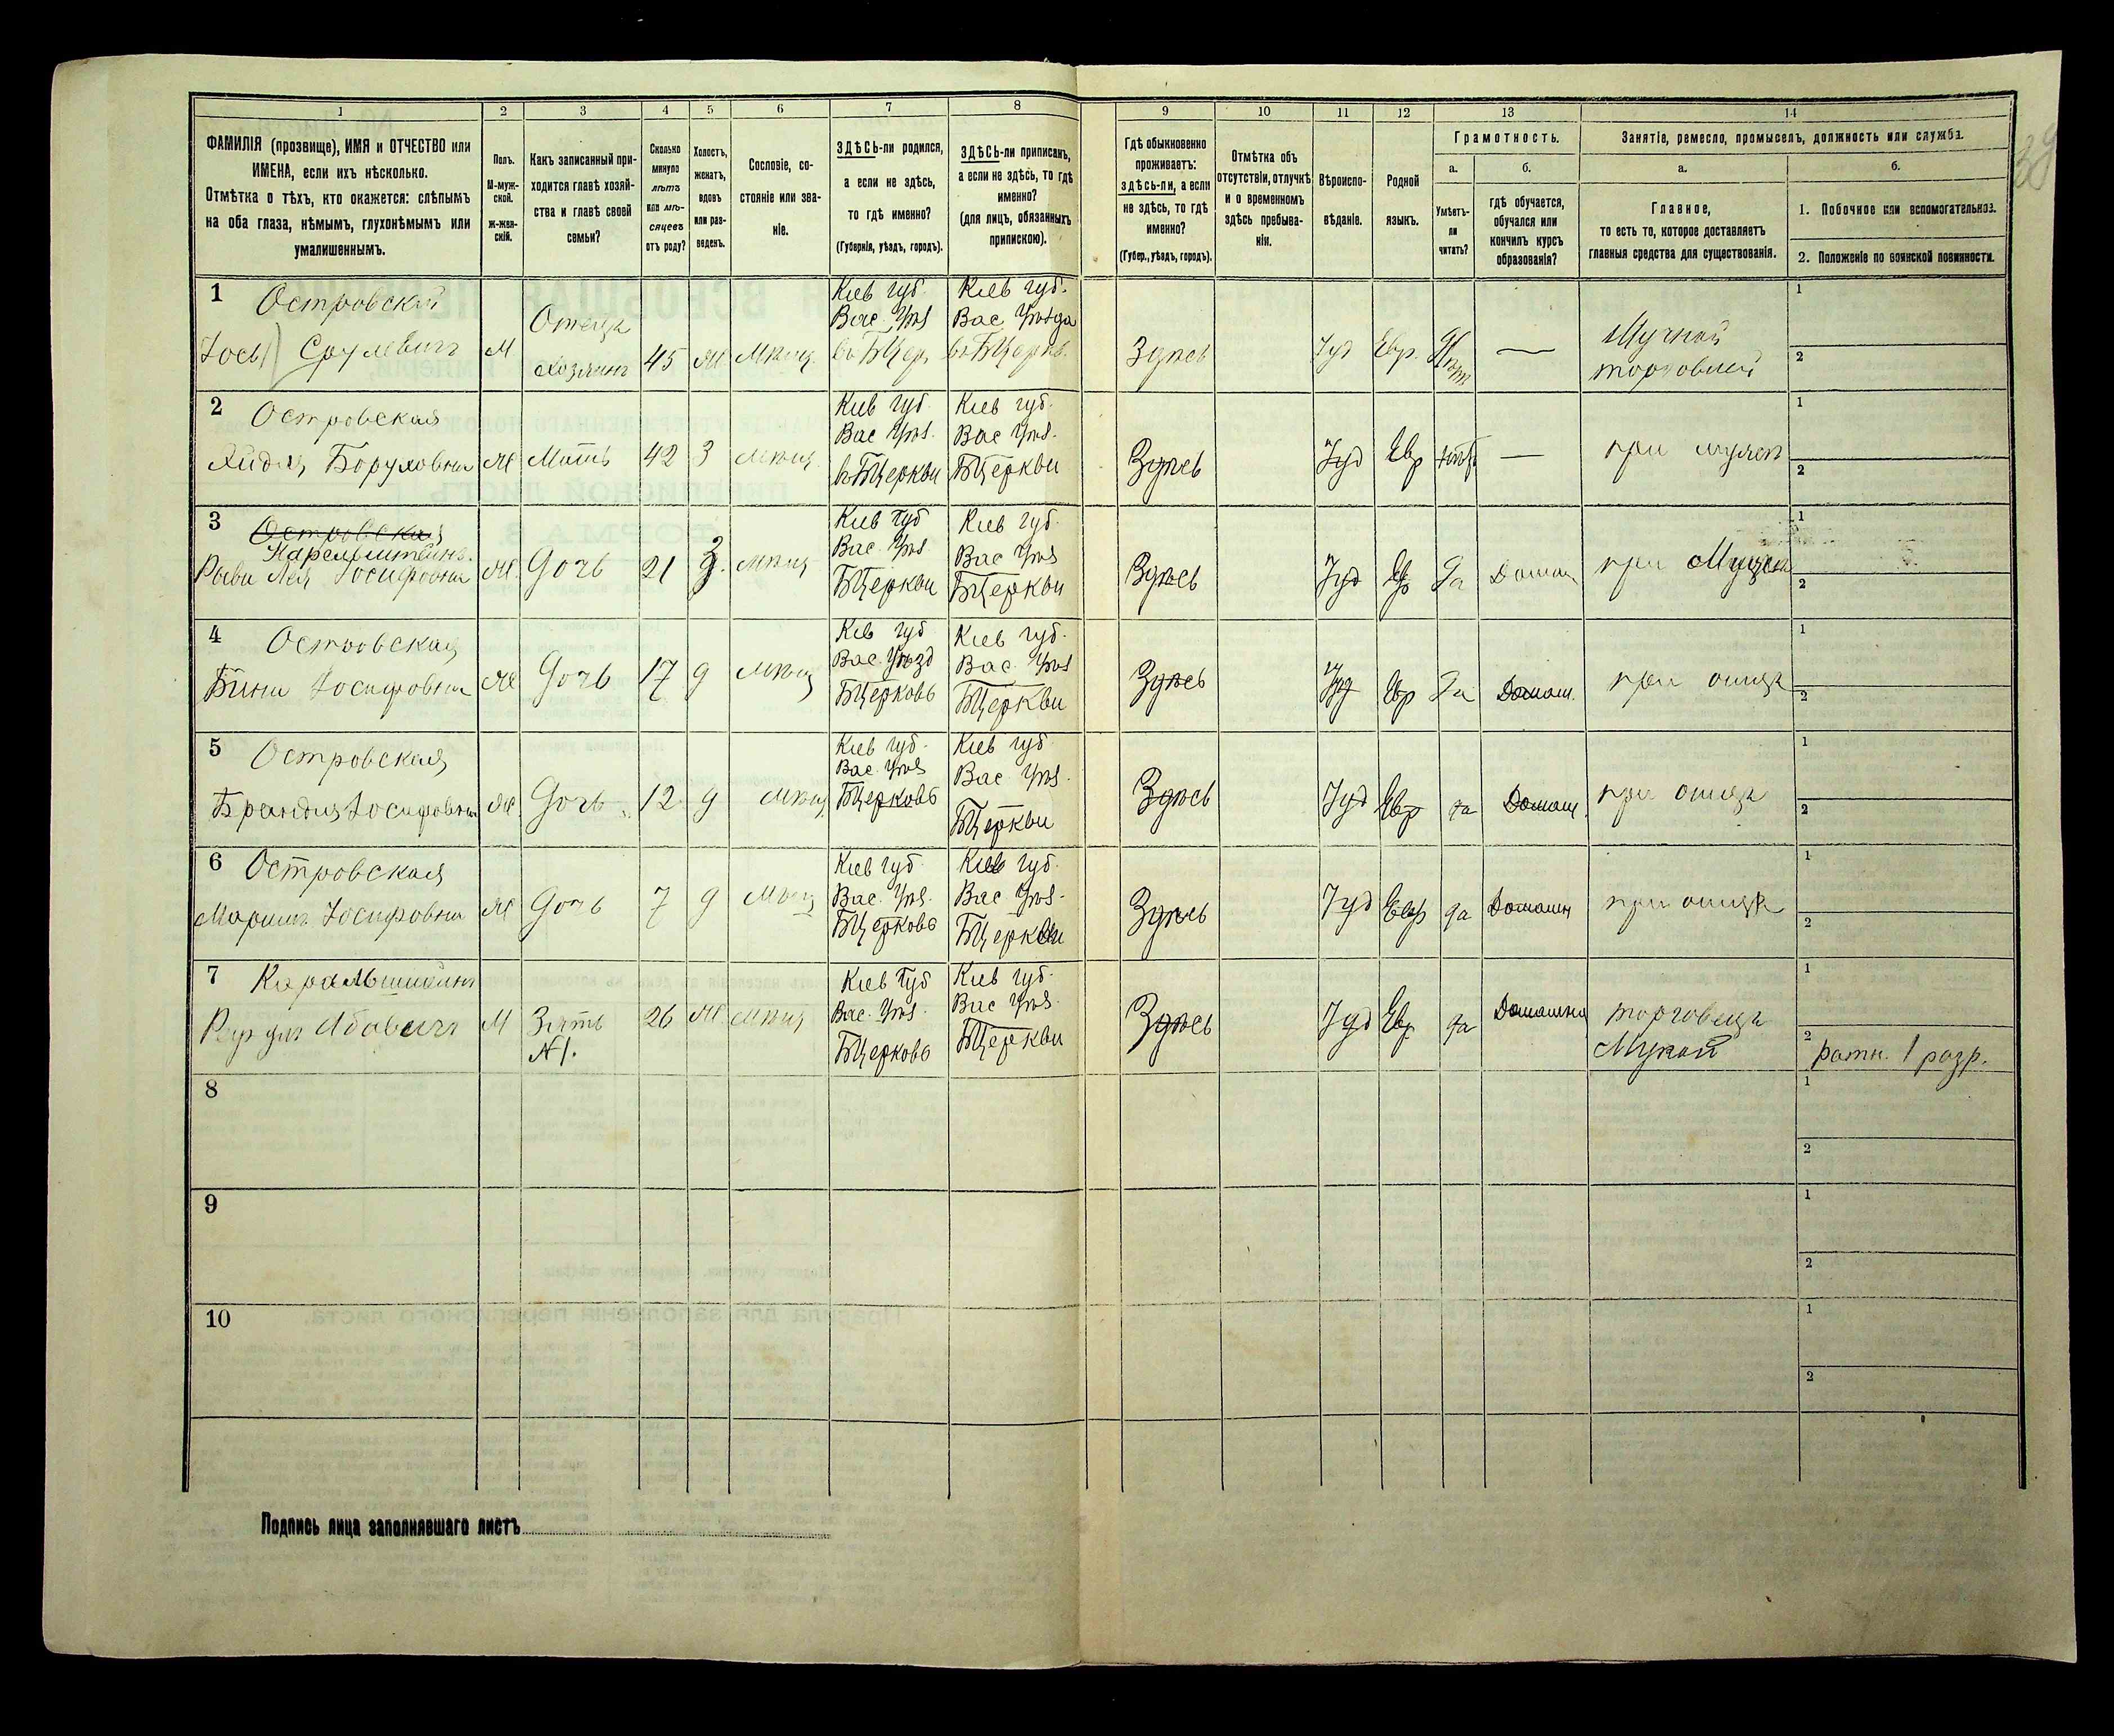 1
2
3
4
5
6
7
8
9
10
11
12
13
14
ФАМИЛІЯ (прозвище), ИМЯ и ОТЧЕСТВО или
ИМЕНА, если ихъ нѣсколько.
Отмѣтка о тѣхъ, кто окажется: слѣпымъ
на оба глаза, нѣмымъ, глухонѣмымъ или
умалишеннымъ.
Полъ.
М-муж-
ской.
Ж-жен-
скій.
Какъ записанный при-
ходится главѣ хозяй-
ства и главѣ своей
семьи?
Сколько
минуло
лѣтъ
или мѣ-
сяцевъ
отъ роду?
Холостъ,
женатъ,
вдовъ
или раз-
веденъ.
Сословіе, со-
стояніе или зва-
ніе.
ЗДѢСЬ-ли родился,
а если не здѣсь,
то гдѣ именно?
(Губернія, уѣздъ, городъ).
ЗДѢСЬ-ли приписанъ,
а если не здѣсь, то гдѣ
именно?
(для лицъ, обязанныхъ
припискою).
Гдѣ обыкновенно
проживаетъ:
здѣсь-ли, а если
не здѣсь, то гдѣ
именно?
(Губер., уѣздъ, городъ).
Отмѣтка объ
отсутствіи, отлучкѣ
и о временномъ
здѣсь пребыва-
ніи.
Вѣроиспо-
вѣданіе.
Родной
языкъ.
Грамотность.
а.
Умѣетъ-
ли
читать?
б.
гдѣ обучается,
обучался или
кончилъ курсъ
образованія?
Занятіе, ремесло, промыселъ, должность или служба.
а.
Главное,
то есть то, которое доставляетъ
главныя средства для существованія.
б.
1. Побочное или вспомогательное.
2. Положеніе по воинской повинности.
1 Островскій
Іось Срулевичъ
М
Отецъ
Хозяинъ
45
Ж
Мѣщ.
Кіев губ.
Вас. Уѣз
въ БЦер.
Кіев губ.
Вас Уѣзда
въ БЦеркв.
Здѣсь
Іуд
Евр.
Нѣт
—
Мучной
торговлей
1
2
2 Островская
Хайдя Боруховна
Ж
Мать
42
З
Мѣщ.
Кіев губ.
Вас Уѣз.
въ БЦеркви
Кіев губ.
Вас Уѣз.
БЦеркви
Здѣсь
Іуд
Евр
—
при мужѣ
1
2
3 Островская
Карельштейнъ
Лея Іосифовна
Ж.
Дочь
21
З.
мѣщ
Кіев Губ
Вас. Уѣз
БЦеркви
Кіев губ.
Вас Уѣз
БЦеркви
Здѣсь
Іуд
Ев
Да
Домаш
при Мужѣ
1
2
4 Островская
Бина Іосифовна
Ж
Дочь
17
д
Мѣщ
Кіев губ
Вас. Уѣзд
БЦерковь
Кіев губ.
Вас. Уѣз
БЦеркви
Здѣсь
Іуд
Евр
Да
Домаш.
при отцѣ
1
2
5 Островская
Брандля Іосифовна
Ж.
Дочь
12
д
Мѣщ.
Кіев губ.
Вас. Уѣз
БЦерковь
Кіев губ.
Вас. Уѣз.
БЦеркви
Здѣсь
Іуд
Евр
да
Домаш.
при отцѣ
1
2
6 Островская
Маримъ Іосифовна
Ж
Дочь
7
д
Мѣщ
Кіев губ.
Вас. Уѣз.
БЦерковь
Кіев губ.
Вас Уѣз.
БЦеркви
Здѣсь
Іуд
Евр
да
Домашн
при отцѣ
1
2
7 Карельштейнъ
Абовичъ
М
Зять
N 1.
26
Ж
Мѣщ
Кіев Губ
Вас. Уѣз.
БЦерковь
Кіев губ.
Вас Уѣз.
БЦеркви
Здѣсь
Іуд
Евр
да
Домашне
торговецъ
Мукой
1
2
ратн. 1 разр.
8
1
2
9
1
2
10
1
2
Подпись лица заполнявшаго листъ
38